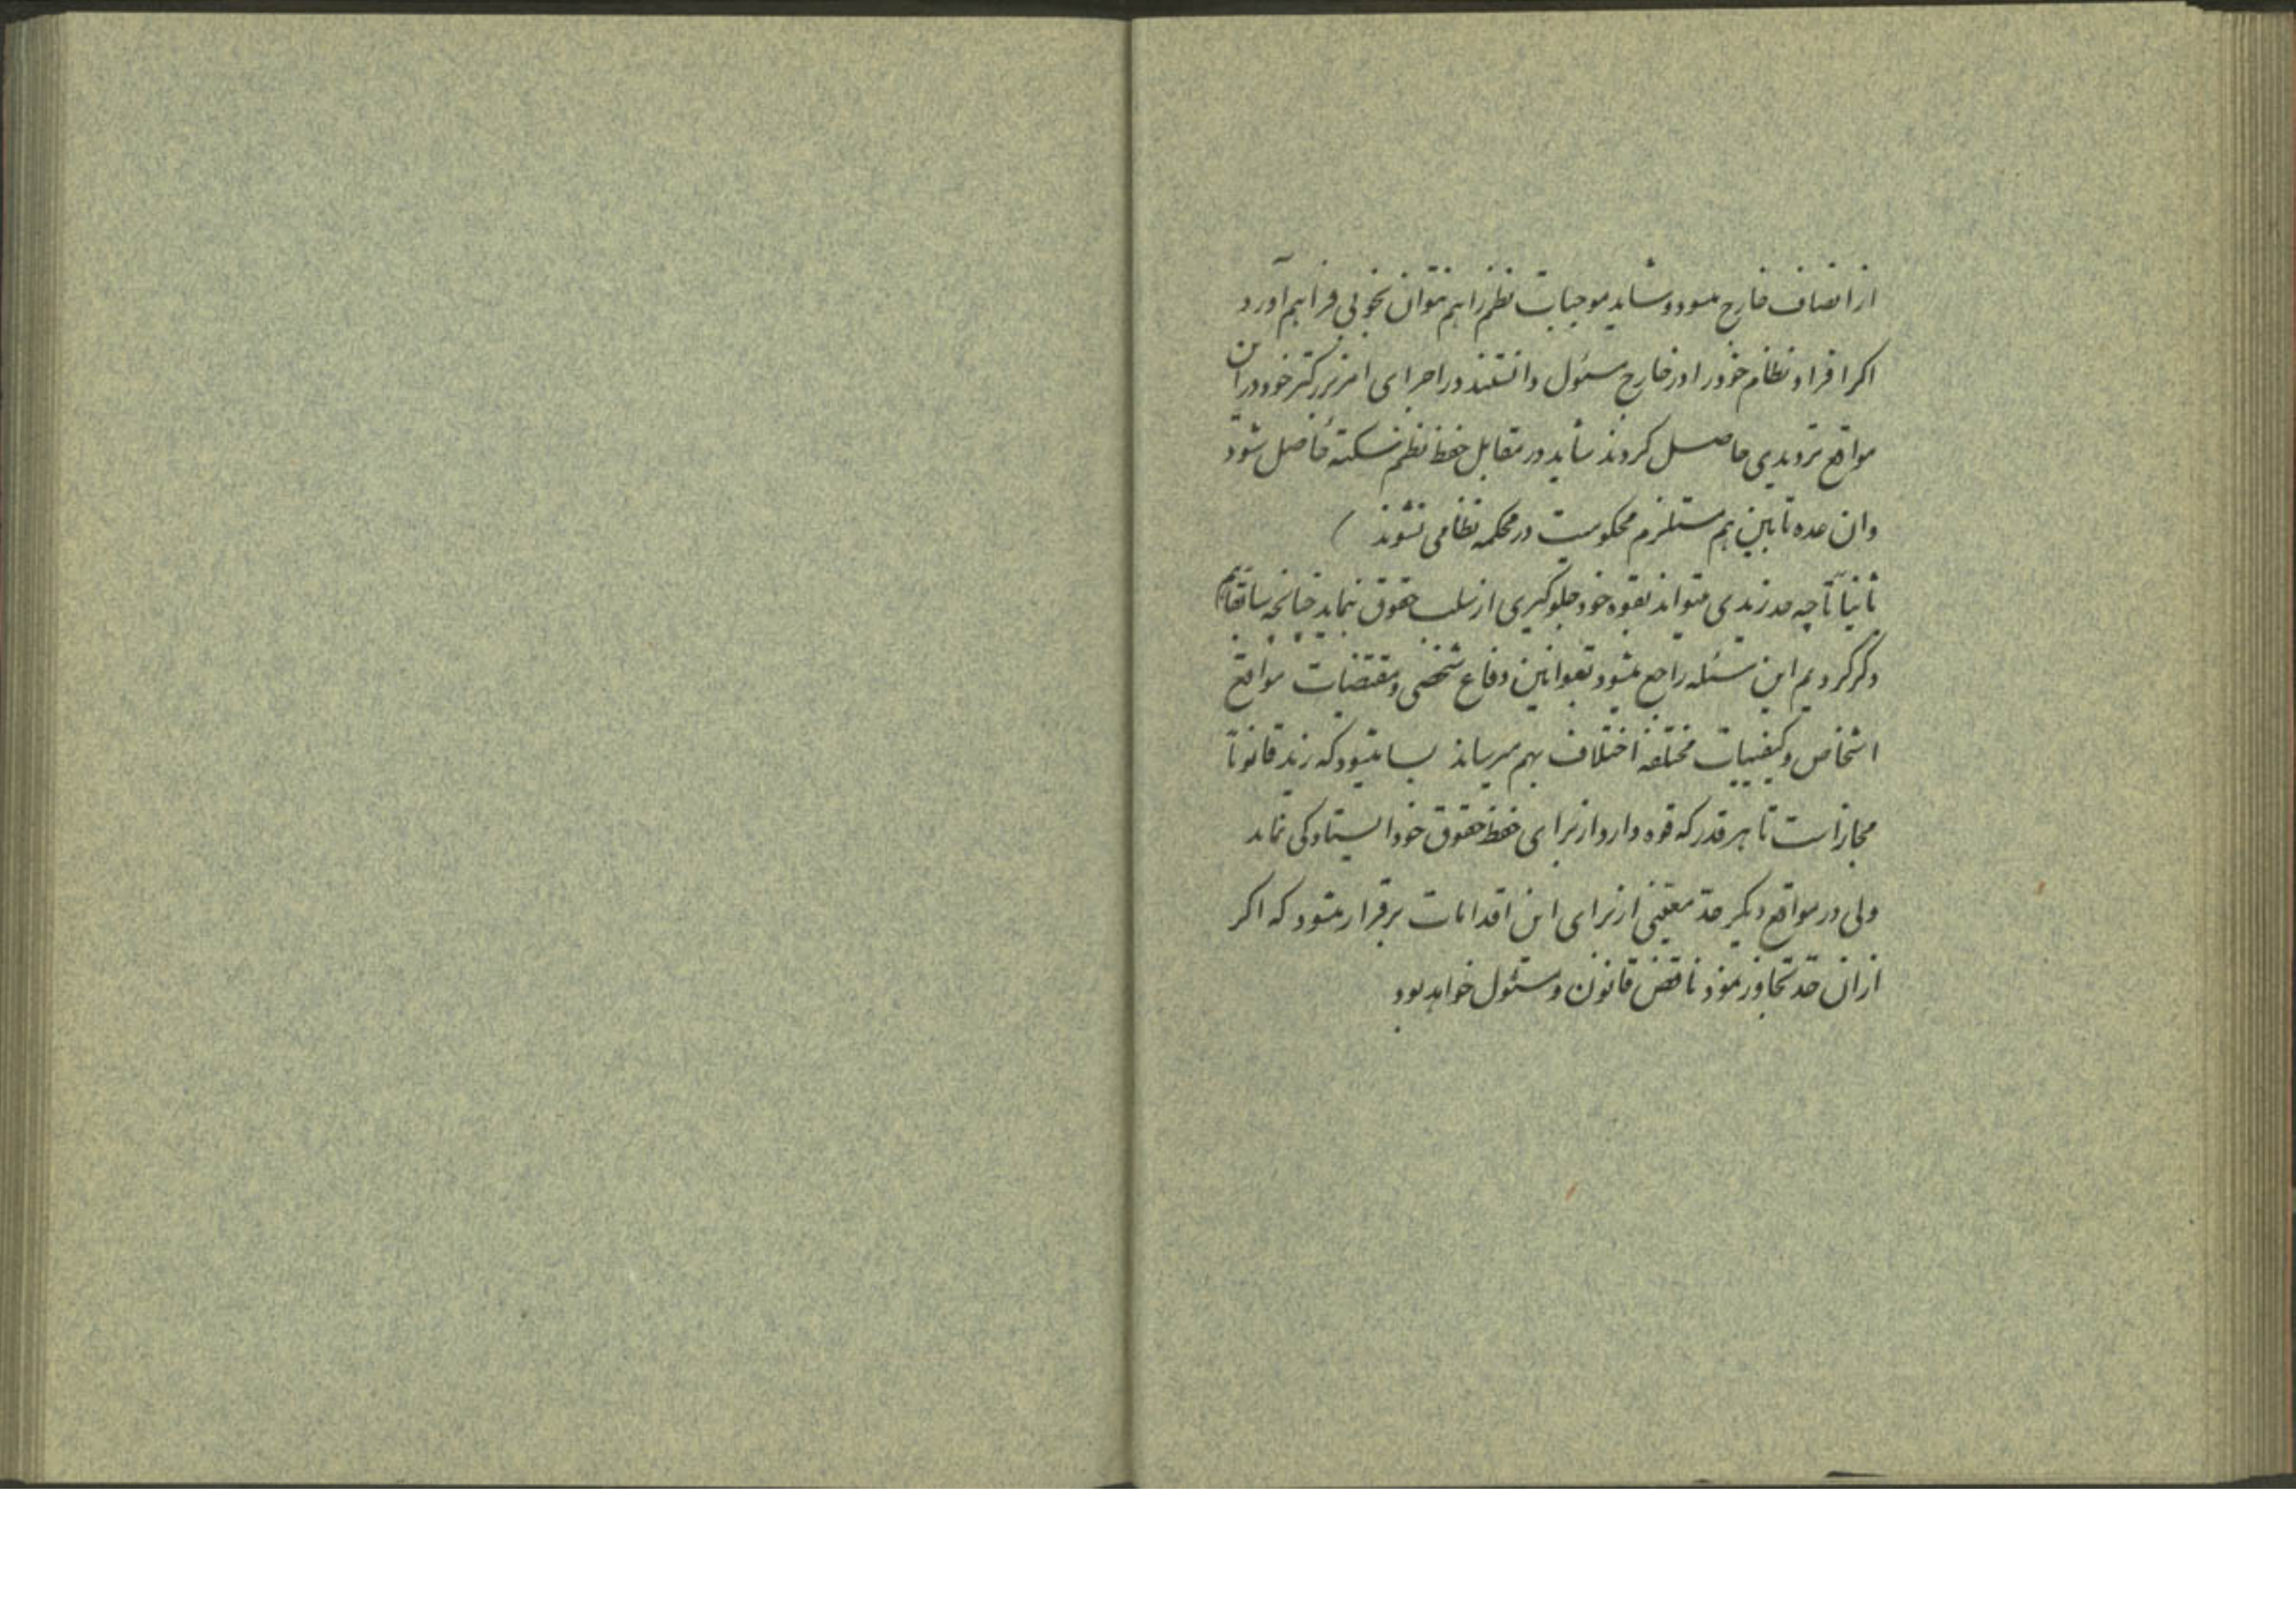 از انصاف خارج میشود و شاید موجبات نظم را هم نتوان بخوبی فراهم آورد
اکر افراد نظام خود را در خارج مسئول دانستند در اجرای امر بزرکتر خود در آن
مواقع تردیدی حاصل کردند شاید در مقابل حفظ نظم سکته حاصل شود
وان عده تابین هم مستلزم محکومیت در محکمه نظامی نشوند )
ثانیاً تا چه حد زیدی میتواند بقوه خود جلوکیری از سلب حقوق نماید چنانچه سابقاً هم
ذکر کردیم این مسئله راجع میشود بقوانین دفاع شخصی و مقتضیات مواقع
اشخاص و کیفییات مختلفه اختلاف بهم میرساند بسا میشود که زید قانوناً
مجاز است تا هر قدر که قوه دارد از برای حفظ حقوق خود ایستادکی نماید
ولی در مواقع دیکر حد معینی از برای این اقدامات برقرار میشود که اکر
از ان حد تجاوز نمود ناقض قانون و مسئول خواهد بود